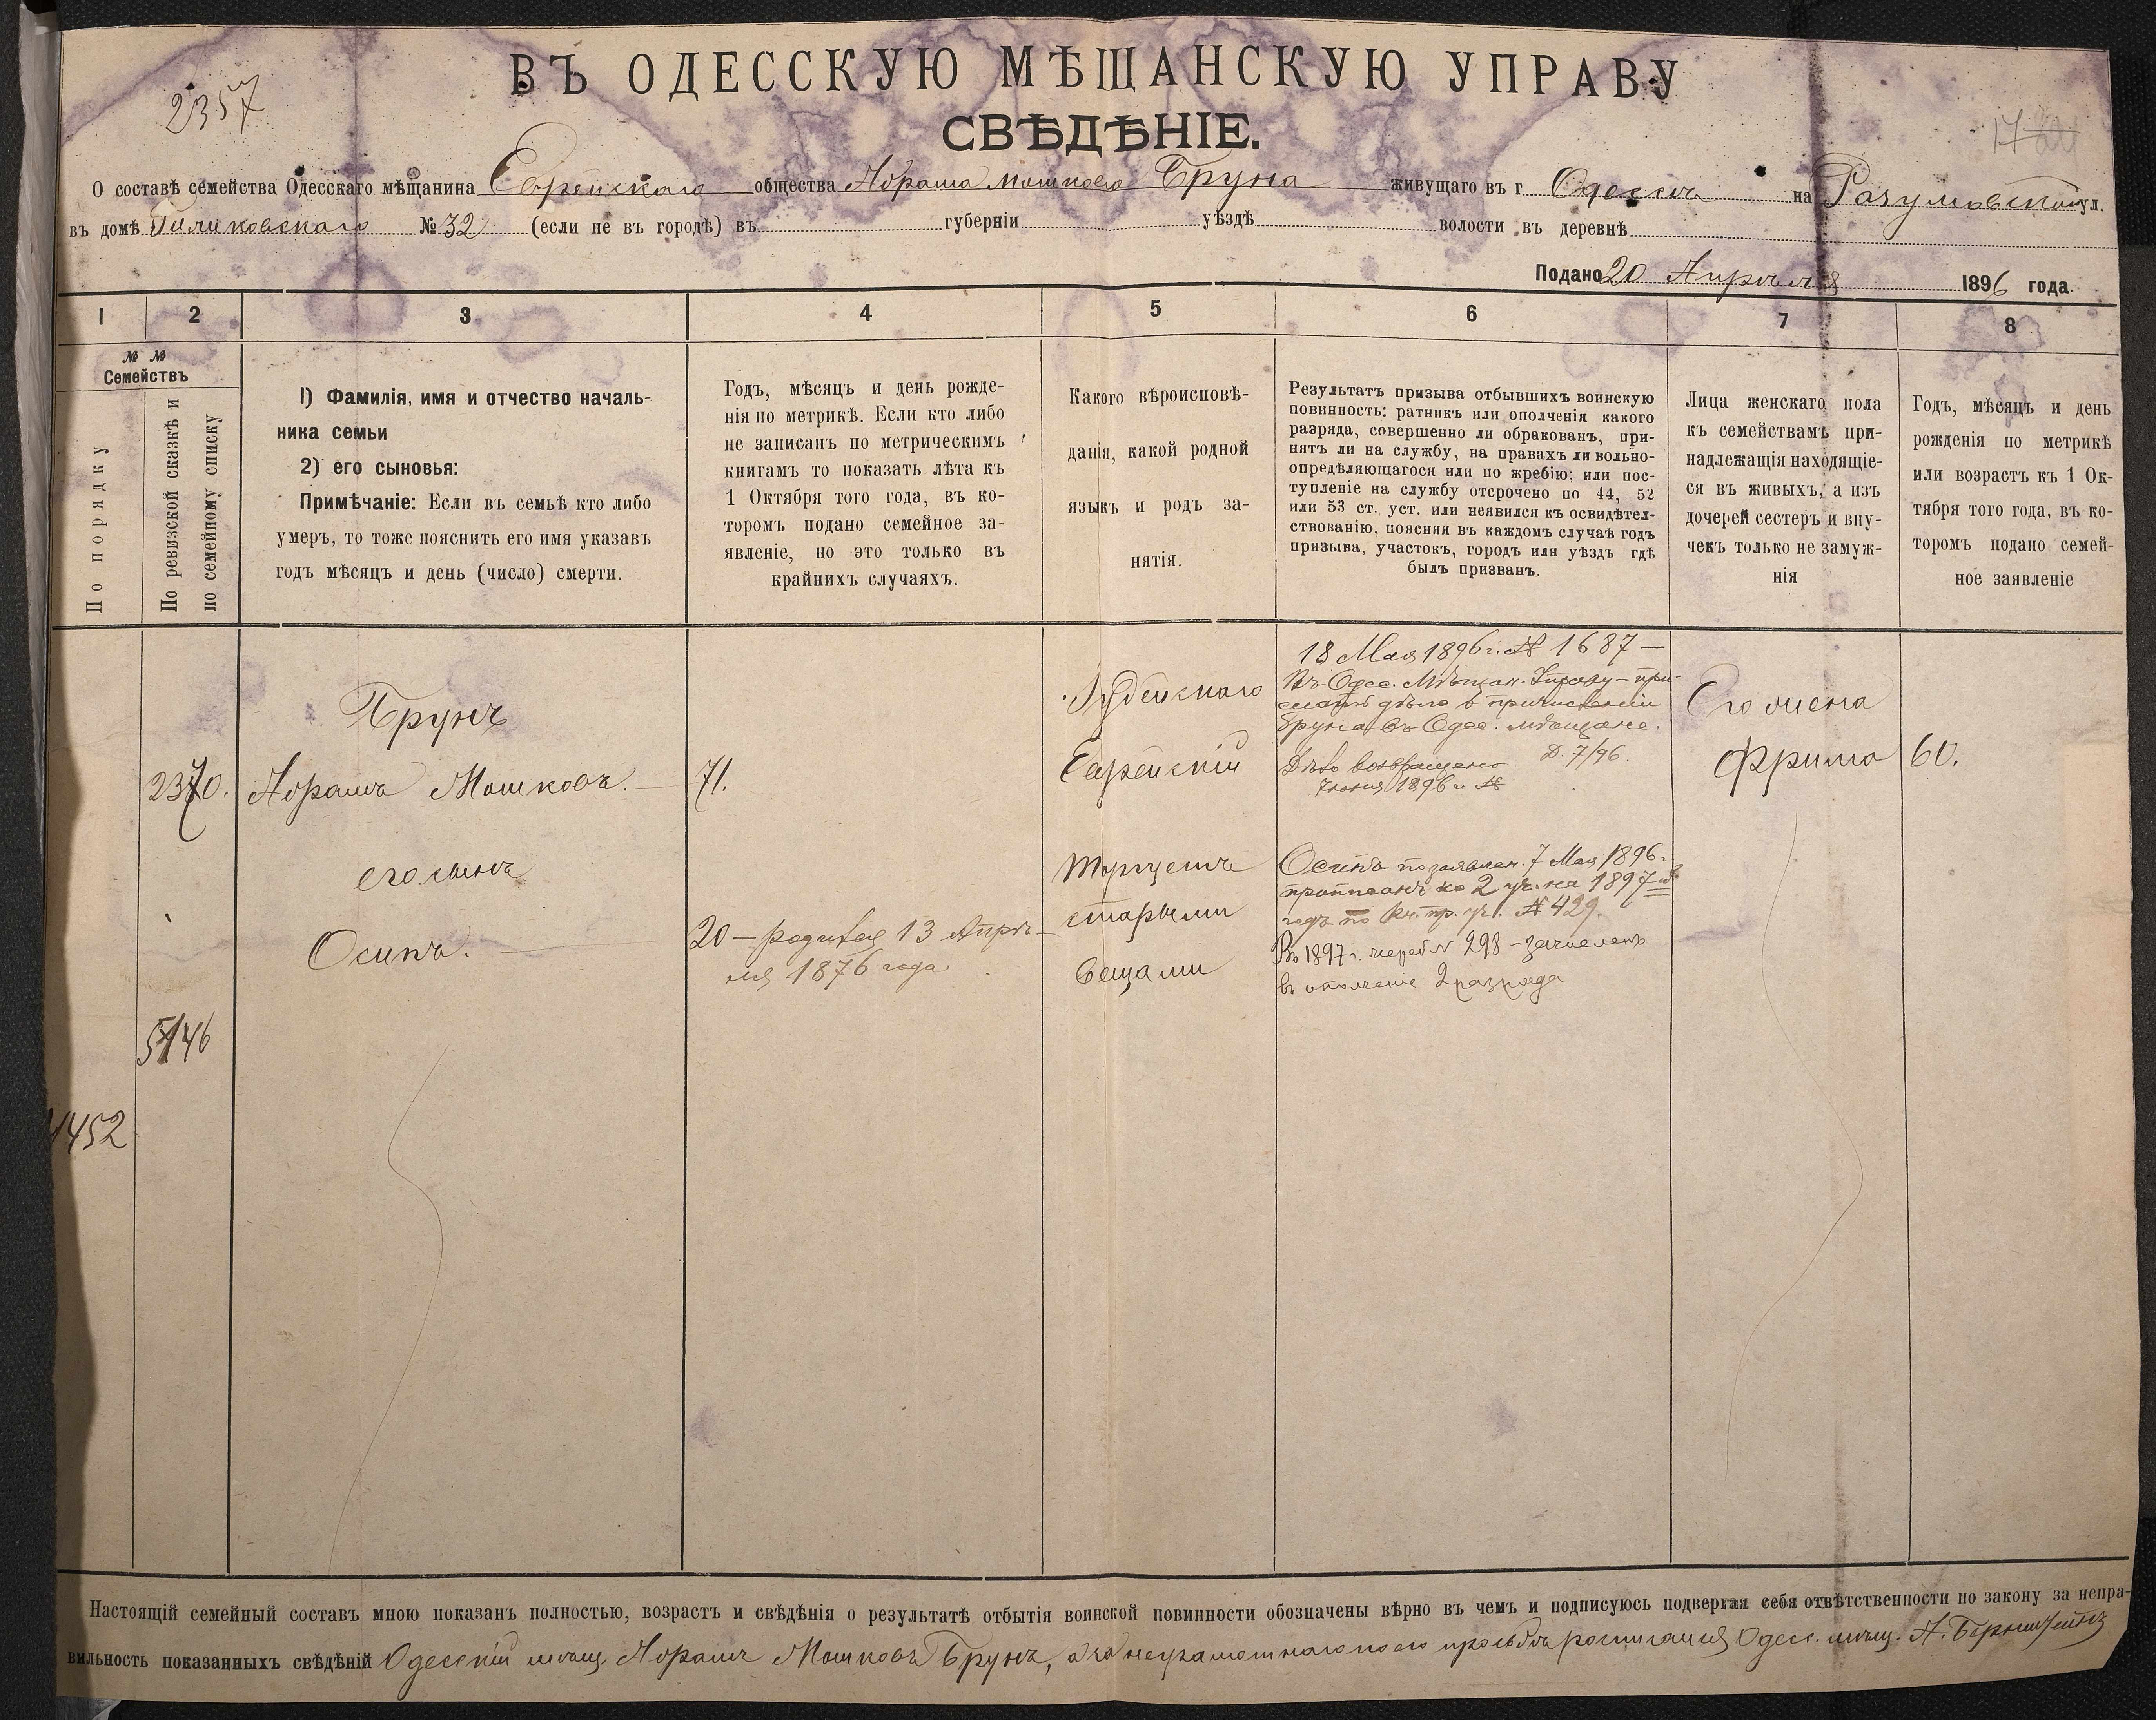 ВЪ ОДЕССКУЮ МѢЩАНСКУЮ УПРАВУ
2357
СВѢДѢНІЕ.
О составѣ семейства Одесскаго мѣщанина Еврейскаго общества Абрама Мошкова Бруна живущаго въ г. Одессѣ на Разумовской ул.
въ домѣ № 32 (если не въ городѣ) въ губерніи уѣздѣ волости въ деревнѣ
Подано 20 Апрѣля 1896 года.
1 2 3 4 5 6 7 8
№ №
Семействъ
По порядку
По ревизской сказкѣ и
по семейному списку
1) Фамилія, имя и отчество началь-
ника семьи
2) его сыновья:
Примѣчаніе: Если въ семьѣ кто либо
умеръ, то тоже пояснить его имя указавъ
годъ мѣсяцъ и день (число) смерти.
Годъ, мѣсяцъ и день рожде-
нія по метрикѣ. Если кто либо
не записанъ по метрическимъ
книгамъ то показать лѣта къ
1 Октября того года, въ ко-
торомъ подано семейное за-
явленіе, но это только въ
крайнихъ случаяхъ.
Какого вѣроисповѣ-
данія, какой родной
языкъ и родъ за-
нятія.
Результатъ призыва отбывшихъ воинскую
повинность: ратникъ или ополченія какого
разряда, совершенно ли обракованъ, при-
нятъ ли на службу, на правахъ ли вольно-
опредѣляющагося или по жребію; или пос-
тупленіе на службу отсрочено по 44, 52
или 53 ст. уст. или неявился къ освидѣтел-
ствованію, поясняя въ каждомъ случаѣ годъ
призыва, участокъ, городъ или уѣздъ гдѣ
былъ призванъ.
Лица женскаго пола
къ семействамъ при-
надлежащія находящіе-
ся въ живыхъ, а изъ
дочерей сестеръ и вну-
чекъ только не замуж-
нія
Годъ, мѣсяцъ и день
рожденія по метрикѣ
или возрастъ къ 1 Ок-
тября того года, въ ко-
торомъ подано семей-
ное заявленіе
2370.
5146
1452
Брунъ
Абрамъ Мошковъ.
его сынъ
Осипъ.
71.
20 — родился 13 Апрѣ-
ля 1876 года.
Іудейскаго
Еврейскій
Торгуетъ
старыми
вещами
18 Мая 1896 г. № 1687 —
Въ Одес. Мѣщан. Управу — при-
слать дѣло о причисленіи
Бруна въ Одес. мѣщане.
Д. 7/96.
Дѣло возвращено
7 Іюня 1896 г. №
Осипъ по заявлен. 7 Мая 1896 г.
приписанъ ко 2 уч. на 1897
годъ по Кн. пр. уч. № 429.
Въ 1897 г. жереб № 298 — зачисленъ
въ ополченіе 2 разряда
Его жена
Фрима
60.
Настоящій семейный составъ мною показанъ полностью, возрастъ и свѣдѣнія о результатѣ отбытія воинской повинности обозначены вѣрно въ чемъ и подписуюсь подвергая себя отвѣтственности по закону за непра-
вильность показанныхъ свѣдѣній Одесскій мѣщ. Абрамъ Мошковъ Брунъ, а за неграмотнаго по его просьбѣ росписался Одес. мѣщ. А. Бернштейнъ